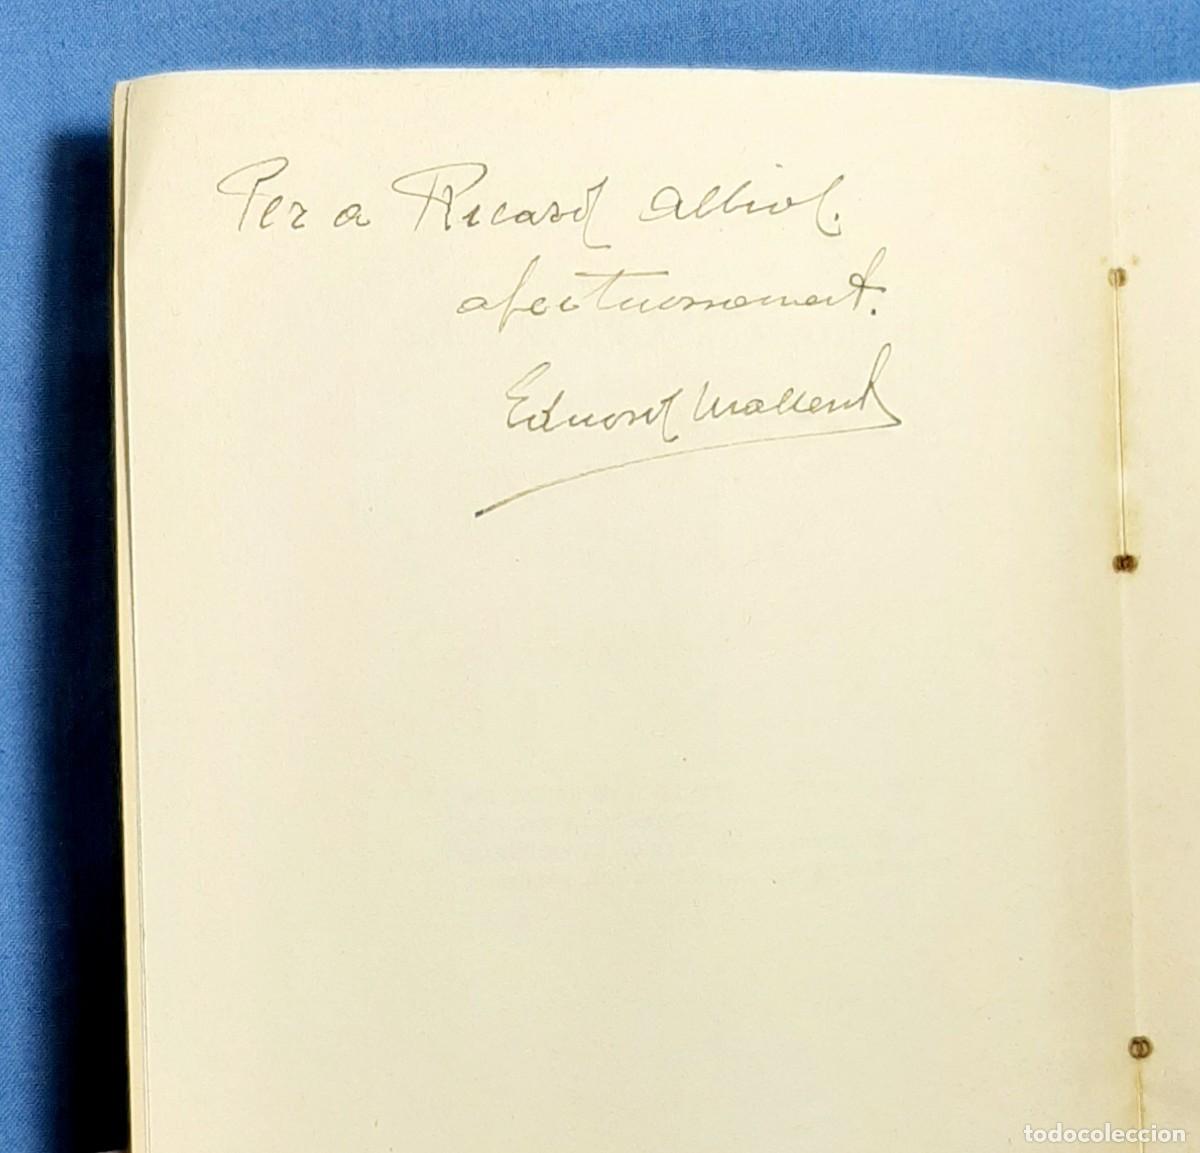 Per a Ricard Albiol.
afectuosament.
Eduard Mallent
todocoleccion